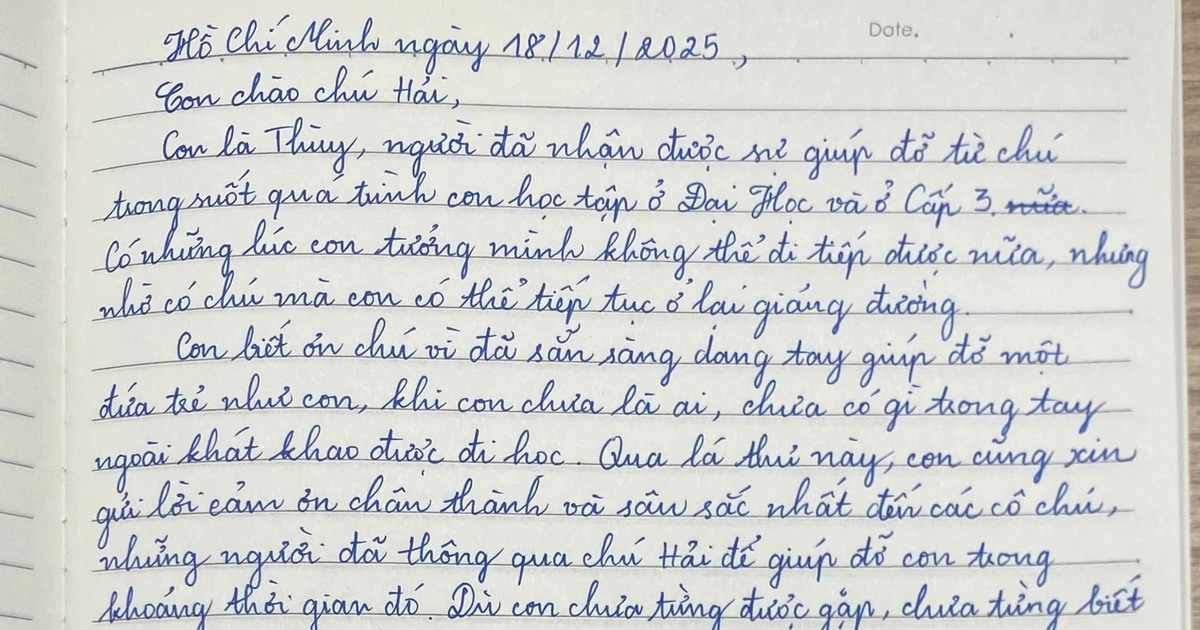 Date.
Hồ Chí Minh ngày 18/12/2025,
Con chào chú Hải,
Con là Thùy, người đã nhận được sự giúp đỡ từ chú
trong suốt quá trình con học tập ở Đại Học và ở Cấp 3. nữa.
Có những lúc con tưởng mình không thể đi tiếp được nữa, nhưng
nhờ có chú mà con có thể tiếp tục ở lại giảng đường.
Con biết ơn chú vì đã sẵn sàng dang tay giúp đỡ một
đứa trẻ như con, khi con chưa là ai, chưa có gì trong tay
ngoài khát khao được đi học. Qua lá thư này, con cũng xin
gửi lời cảm ơn chân thành và sâu sắc nhất đến các cô chú,
những người đã thông qua chú Hải để giúp đỡ con trong
khoảng thời gian đó. Dù con chưa từng được gặp, chưa từng biết